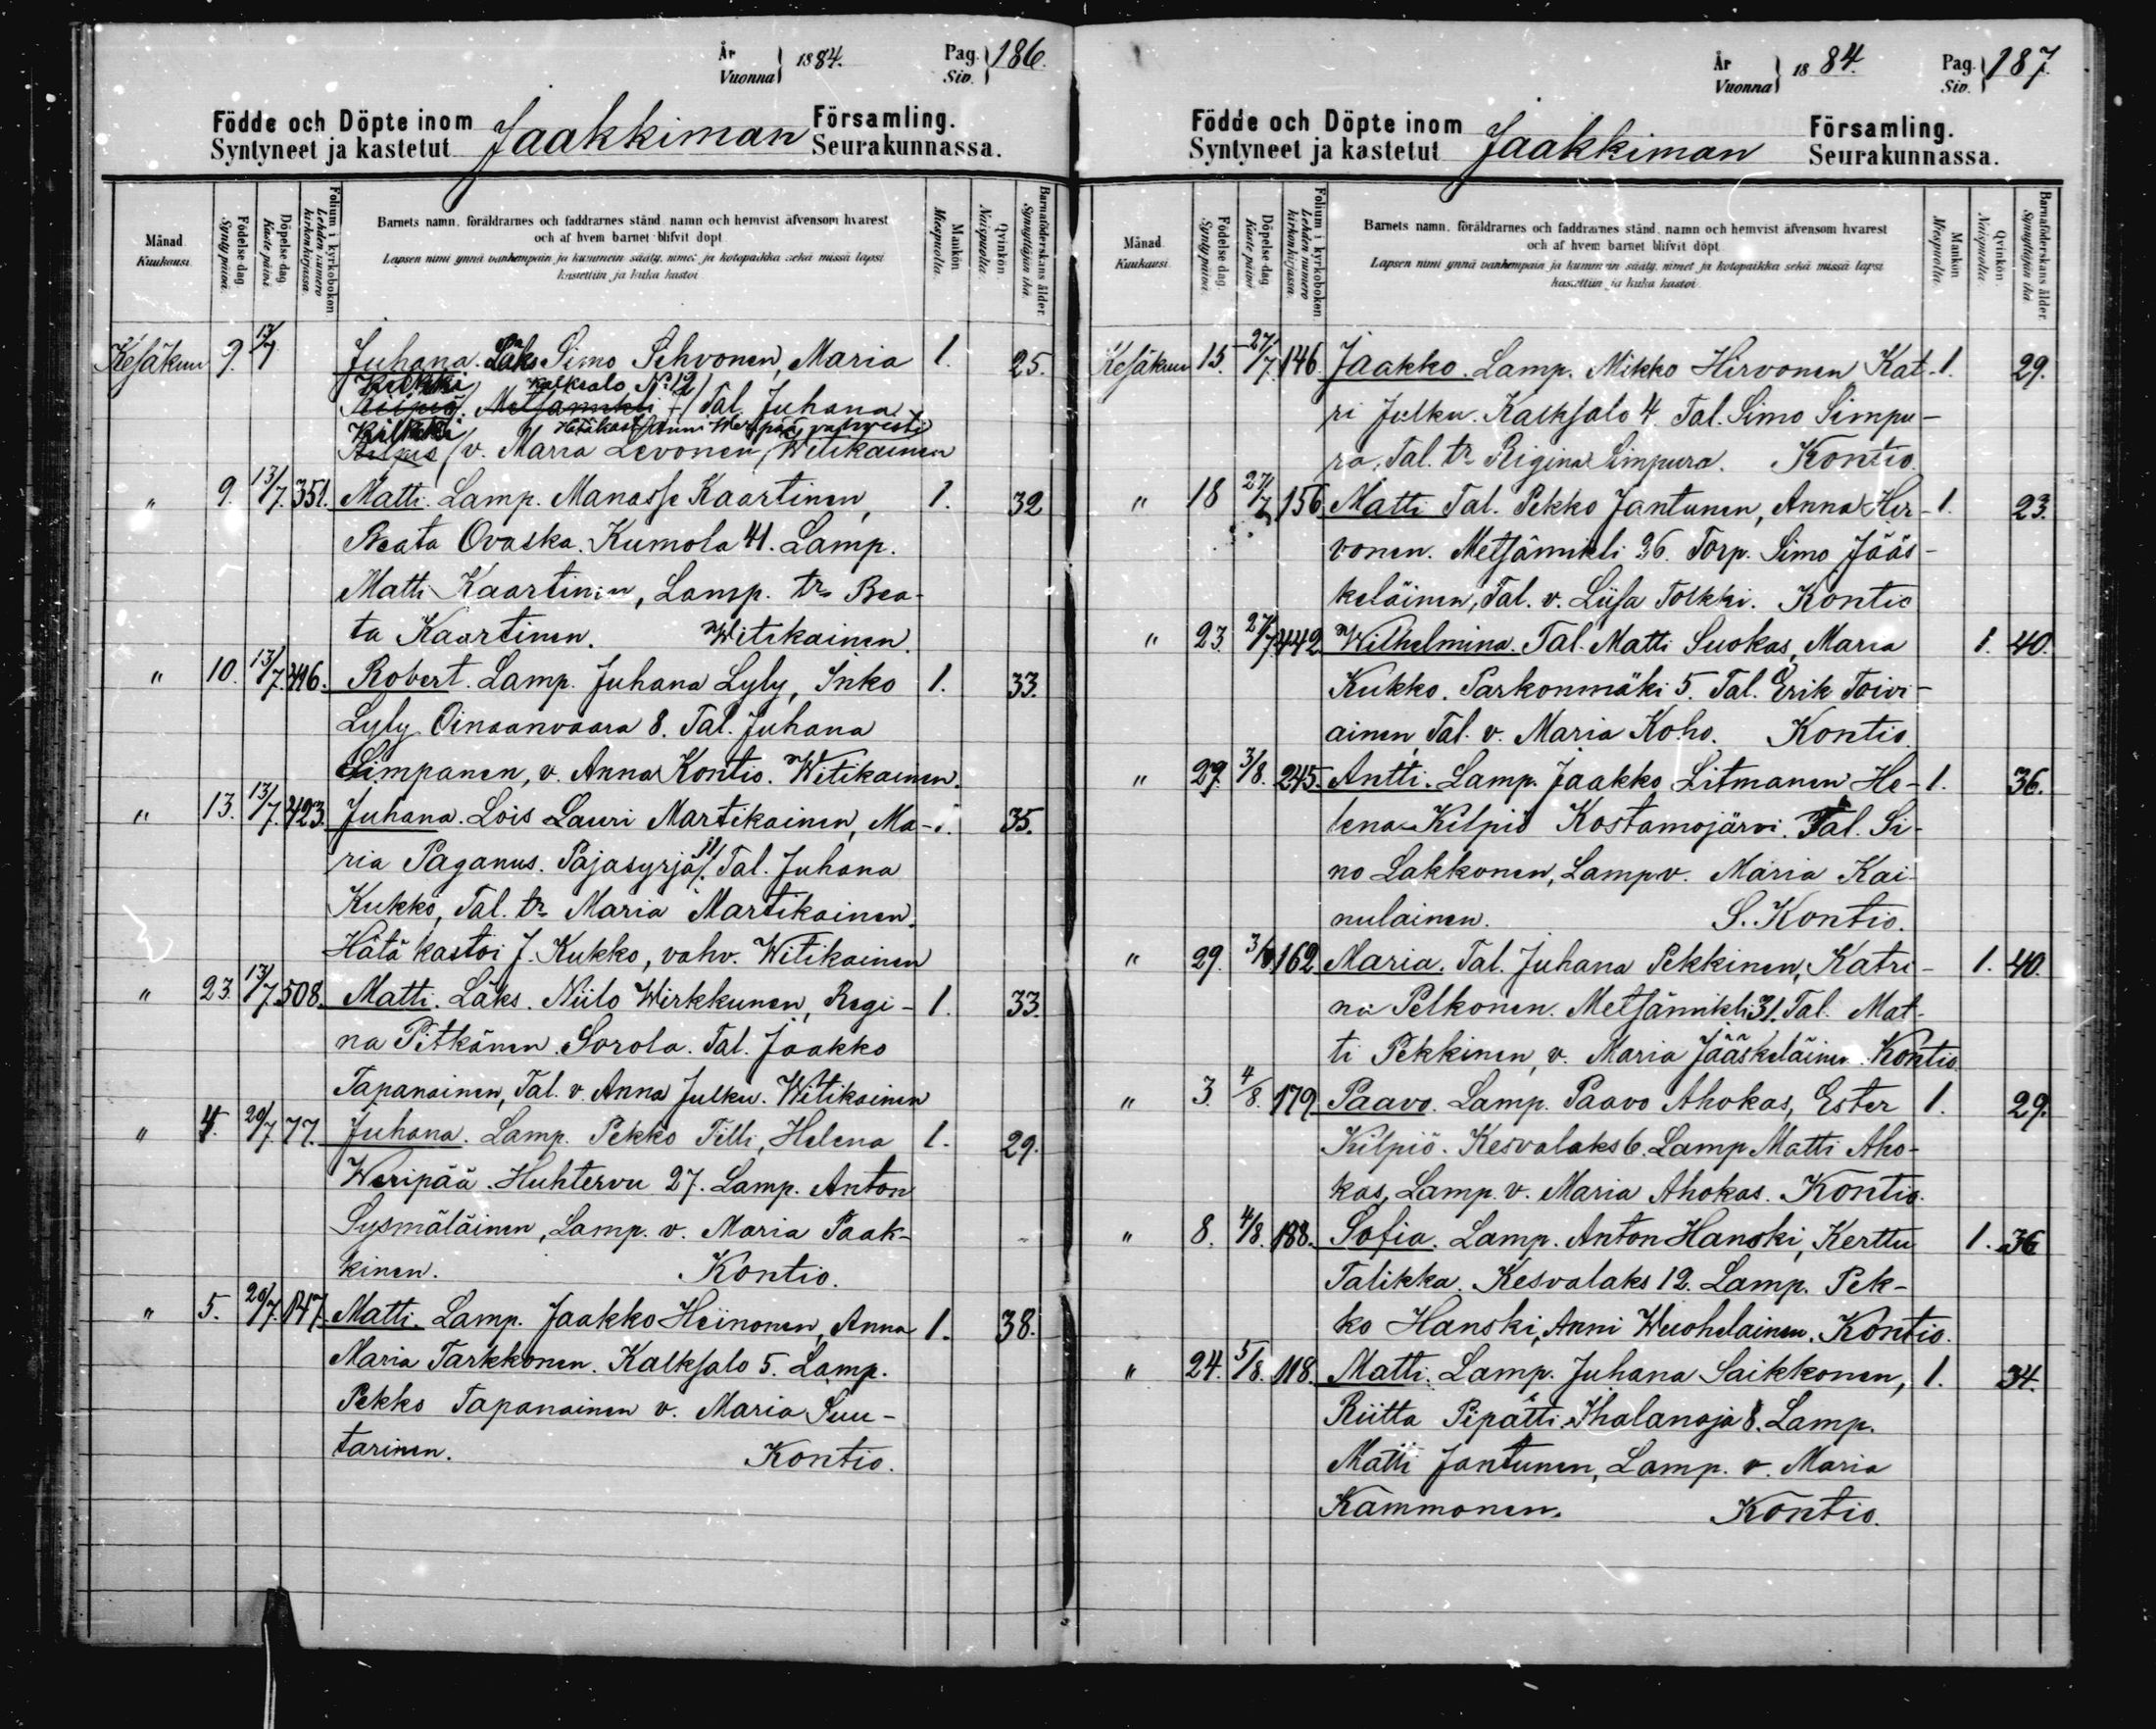 År
Vuonna } 1884.
Pag.
Siv. } 186.
Födde och Döpte inom
Syntyneet ja kastetut Jaakkiman Församling.
Seurakunnassa.
Månad
Kuukausi
Födelse dag.
Synty päivä.
Döpelse dag
Kaste päivä.
Folium i kyrkoboken
Lehden numero
kirkonkirjassa.
Barnets namn, föräldrarnes och faddrarnes stånd, namn och hemvist äfvensom hvarest
och af hvem barnet blifvit döpt.
Lapsen nimi ynnä vanhempain ja kummein sääty, nimet ja kotopaikka sekä missä lapsi
kastettiin ja kuka kastoi.
Mankön
Miespuolia.
Qvinkön.
Naispuolia.
Barnaföderskans ålder.
Synnyttäjän ikä.
Kesäkuu 9. 13/7 Juhana. Läks Simo Sihvonen, Maria 1. 25.
Kilkki Kalksalo № 12
Kilpiö. Metsämikli Tal. Juhana
Kilkki Hätäkast. Anni Weripää, vahvisti
Kilpiö v. Maria Levonen, Witikainen
" 9. 13/7. 351. Matti. Lamp. Manasse Kaartinen, 1. 32
Beata Ovaska. Kumola 41. Lamp.
Matti Kaartinen, Lamp. tr Bea-
ta Kaartinen. Witikainen.
" 10. 13/7. 416. Robert. Lamp. Juhana Lyly, Inko 1. 33.
Lyly Oinaanvaara 8. Tal. Juhana
Simpanen, v. Anna Kontio. Witikainen.
" 13. 13/7. 423. Juhana. Lois Lauri Martikainen, Ma- 1. 35.
ria Paganus. Pajasyrjä 11/. Tal. Juhana
Kukko, Tal. tr Maria Martikainen.
Hätä kastoi J. Kukko, vahv. Witikainen
" 23. 13/7. 508. Matti. Läks. Niilo Wirkkunen, Regi- 1. 33.
na Pitkänen. Sorola. Tal. Jaakko
Tapanainen, Tal. v. Anna Julku. Witikainen
" 4. 20/7. 77. Juhana. Lamp. Pekko Tilli, Helena 1. 29.
Weripää. Huhtervu 27. Lamp. Anton
Sysmäläinen, Lamp. v. Maria Paak-
kinen. Kontio.
" 5. 20/7. 147. Matti. Lamp. Jaakko Heinonen, Anna 1. 38.
Maria Tarkkonen. Kalksalo 5. Lamp.
Pekko Tapanainen v. Maria Suu-
tarinen. Kontio.
År
Vuonna } 1884.
Pag.
Siv. } 187.
Födde och Döpte inom
Syntyneet ja kastetut Jaakkiman Församling.
Seurakunnassa.
Månad
Kuukausi.
Födelse dag.
Synty päivä.
Döpelse dag
Kaste päivä
Folium i kyrkoboken
Lehden numero
kirkonkirjassa.
Barnets namn, föräldrarnes och faddrarnes stånd, namn och hemvist äfvensom hvarest
och af hvem barnet blifvit döpt.
Lapsen nimi ynnä vanhempain ja kummein sääty, nimet ja kotopaikka sekä missä lapsi
kastettiin ja kuka kastoi.
Mankön
Miespuolia.
Qvinkön.
Naispuolia.
Barnaföderskans ålder.
Synnyttäjän ikä.
Kesäkuu 15. 27/7. 146. Jaakko. Lamp. Mikko Hirvonen Kat- 1. 29.
ri Julku. Kalksalo 4. Tal. Simo Simpu-
ra, Tal. tr Rigina Simpura. Kontio.
" 18 27/7 156 Matti Tal. Pekko Jantunen, Anna Hir- 1. 23.
vonen. Metsämikli 26. Torp. Simo Jääs-
keläinen, Tal. v. Liisa Tolkki. Kontio
" 23. 27/7. 442. Wilhelmina. Tal. Matti Suokas, Maria 1. 40.
Kukko. Parkonmäki 5. Tal. Erik Toivi-
ainen, Tal. v. Maria Koho. Kontio.
" 29. 3/8. 245. Antti. Lamp. Jaakko Litmanen He- 1. 36.
lena Kilpiö Kostamojärvi. Tal. Si-
mo Lakkonen, Lamp v. Maria Kai-
nulainen. S. Kontio.
" 29. 3/8 162 Maria. Tal. Juhana Pekkinen, Katri- 1. 40.
na Pelkonen. Metsämikli 31. Tal. Mat-
ti Pekkinen, v. Maria Jääskeläinen. Kontio.
" 3. 4/8. 179. Paavo. Lamp. Paavo Ahokas, Ester 1. 29.
Kilpiö. Kesvalaks 6. Lamp Matti Aho-
kas, Lamp. v. Maria Ahokas. Kontio.
" 8. 4/8. 188. Sofia. Lamp. Anton Hanski, Kerttu 1. 36
Talikka. Kesvalaks 12. Lamp. Pek-
ko Hanski, Anni Wuohelainen. Kontio.
" 24. 5/8. 118. Matti. Lamp. Juhana Saikkonen, 1. 34.
Riitta Pipatti. Ihalanoja 8. Lamp.
Matti Jantunen, Lamp. v. Maria
Kammonen. Kontio.